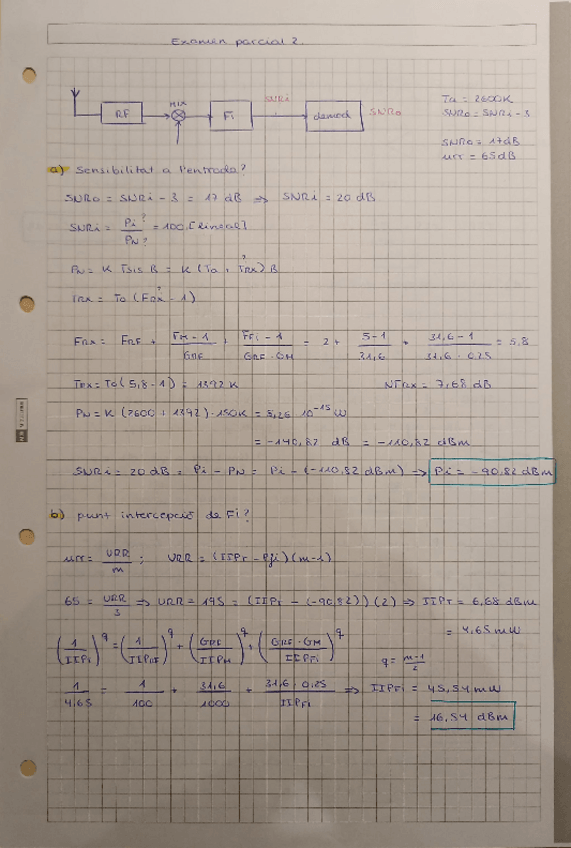 Examen parcial 2.
RF
MIX
Fi
SNRi
demod
SNRo
Ta = 2600K
SNRo = SNRi - 3
SNRo = 17dB
urr = 65dB
a) Sensibilitat a l'entrada?
SNRo = SNRi - 3 = 17 dB ⇒ SNRi = 20 dB
SNRi = Pi? / PN? = 100 [lineal]
PN = K Tsis B = K (Ta + TRX?) B
TRX = To (FRX? - 1)
FRX = FRF + (FM - 1)/GRF + (FFi - 1)/(GRF · GM) = 2 + (5-1)/31,6 + (31,6-1)/(31,6 · 0,25) = 5,8
TRX = To (5,8 - 1) = 1392 K
NFRX = 7,68 dB
PN = K (2600 + 1392) · 150K = 8,26 10^-15 W
= -140,82 dB = -110,82 dBm
SNRi = 20 dB = Pi - PN = Pi - (-110,82 dBm) ⇒ Pi = -90,82 dBm
b) punt intercepció de Fi?
urr = URR/m ; URR = (IIPT - Pji)(m-1)
65 = URR/3 ⇒ URR = 195 = (IIPi - (-90,82)) (2) ⇒ IIPT = 6,68 dBm
= 4,65 mW
(1/IIPi)^q = (1/IIPRF)^q + (GRF/IIPM)^q + (GRF · GM/IIPFi)^q
q = (m-1)/2
1/4,65 = 1/100 + 31,6/1000 + (31,6 · 0,25)/IIPFi ⇒ IIPFi = 45,54 mW
= 16,54 dBm